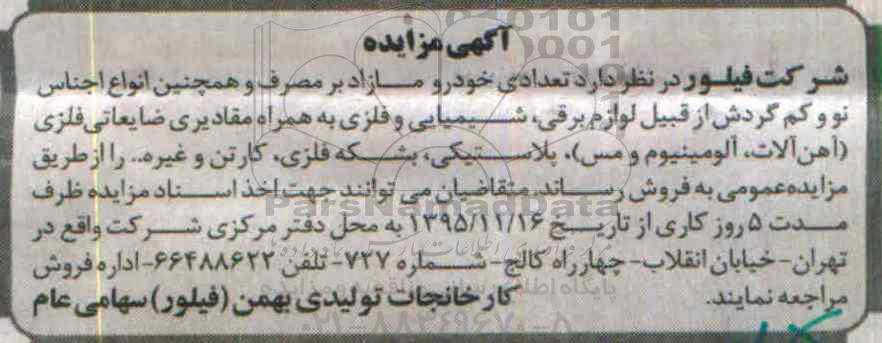 آگهی مزایده
شرکت فیلور در نظر دارد تعدادی خودرو مازاد بر مصرف و همچنین انواع اجناس
نو و کم گردش از قبیل لوازم برقی، شیمیایی و فلزی به همراه مقادیری ضایعاتی فلزی
(آهن آلات، آلومینیوم و مس)، پلاستیکی، بشکه فلزی، کارتن و غیره.. را از طریق
مزایده عمومی به فروش رساند. متقاضیان می توانند جهت اخذ اسناد مزایده ظرف
مدت ۵ روز کاری از تاریخ ۱۳۹۵/۱۱/۱۶ به محل دفتر مرکزی شرکت واقع در
تهران-خیابان انقلاب-چهارراه کالج-شماره ۷۲۷-تلفن ۶۶۴۸۸۶۲۲-اداره فروش
مراجعه نمایند.
کارخانجات تولیدی بهمن (فیلور) سهامی عام
ParsNamadData
۰۲۱-۸۸۳۴۹۶۷۰-۵